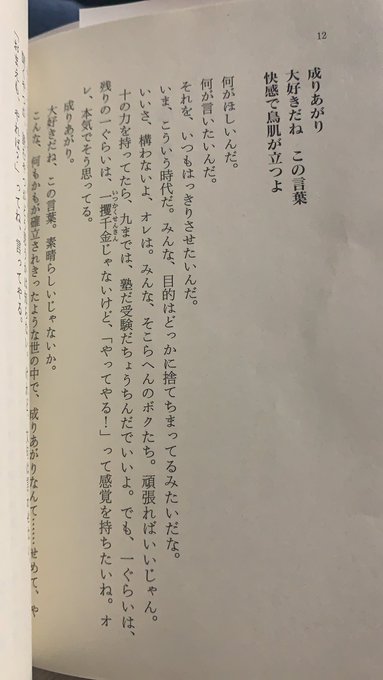 12
成りあがり
大好きだね この言葉
快感で鳥肌が立つよ
何がほしいんだ。
何が言いたいんだ。
それを、いつもはっきりさせたいんだ。
いま、こういう時代だ。みんな、目的はどっかに捨てちまってるみたいだな。
いいさ、構わないよ、オレは。みんな、そこらへんのボクたち。頑張ればいいじゃん。
十の力を持ってたら、九までは、塾だ受験だちょうちんだでいいよ。でも、一ぐらいは、
残りの一ぐらいは、一攫千金じゃないけど、「やってやる!」って感覚を持ちたいね。オ
いっかくせんきん
レ、本気でそう思ってる。
成りあがり。
大好きだね、この言葉。素晴らしいじゃないか。
こんな、何もかもが確立されきったような世の中で、成りあがりなんて……せめて、や